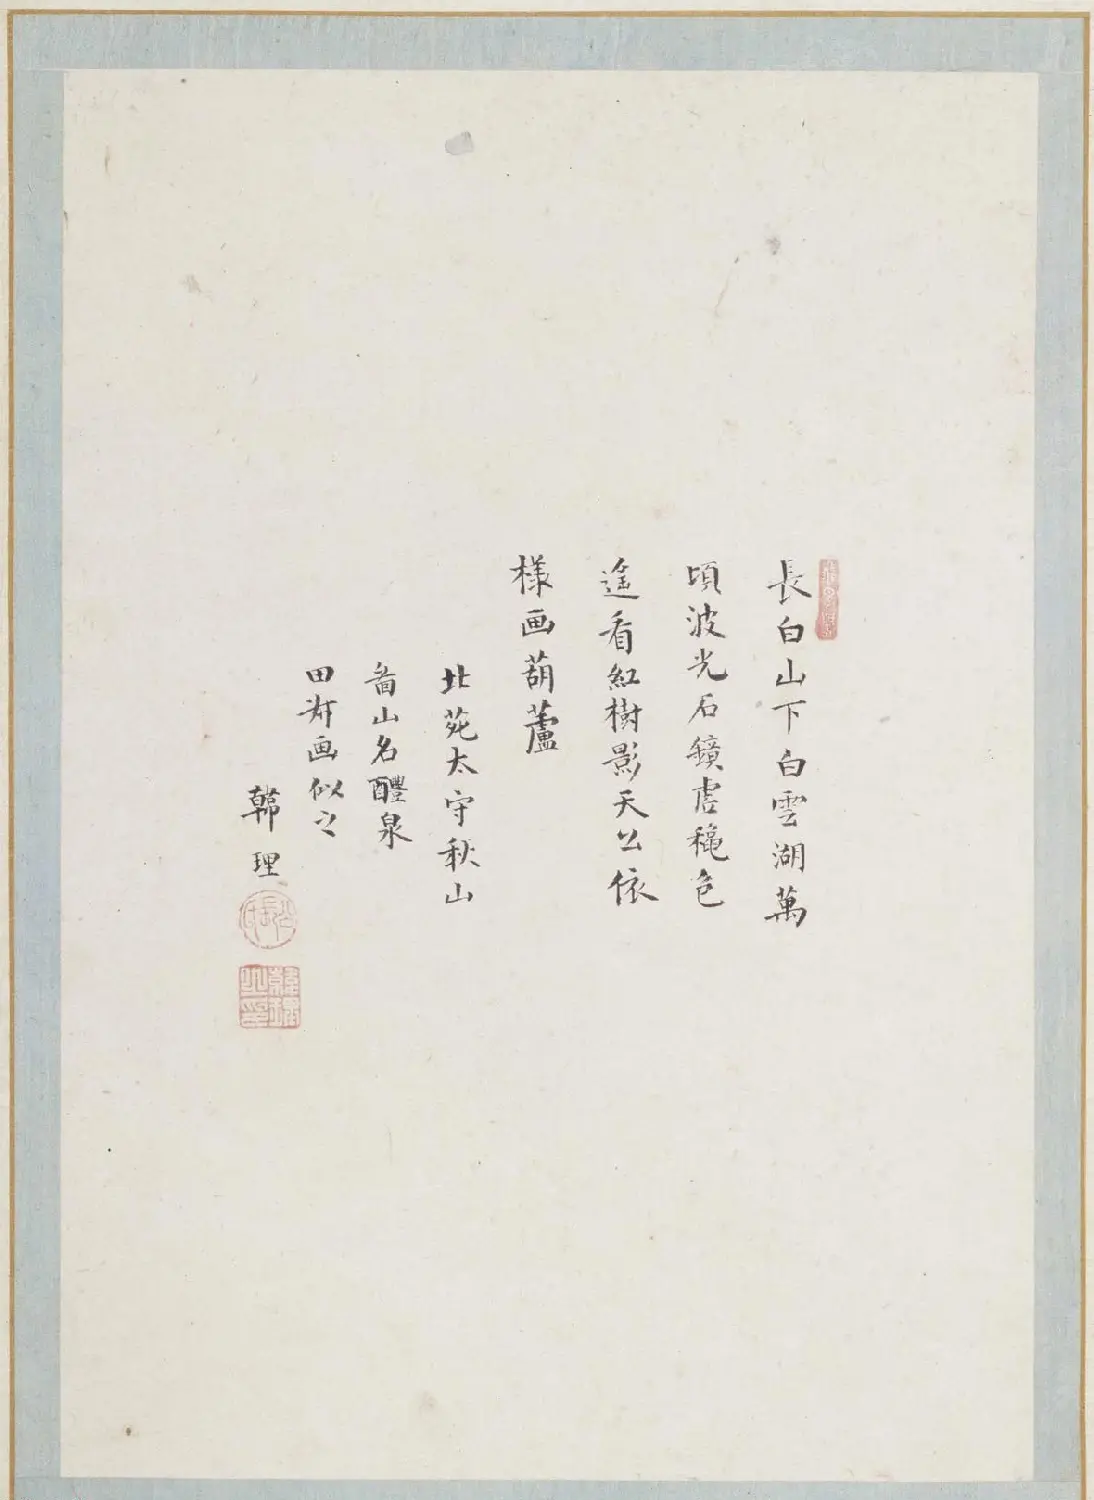 長白山下白雲湖萬
頃波光石鏡虛穐色
遥看紅樹影天公依
樣画葫蘆
北苑太守秋山
啚山名醴泉
田對画似之
韓理